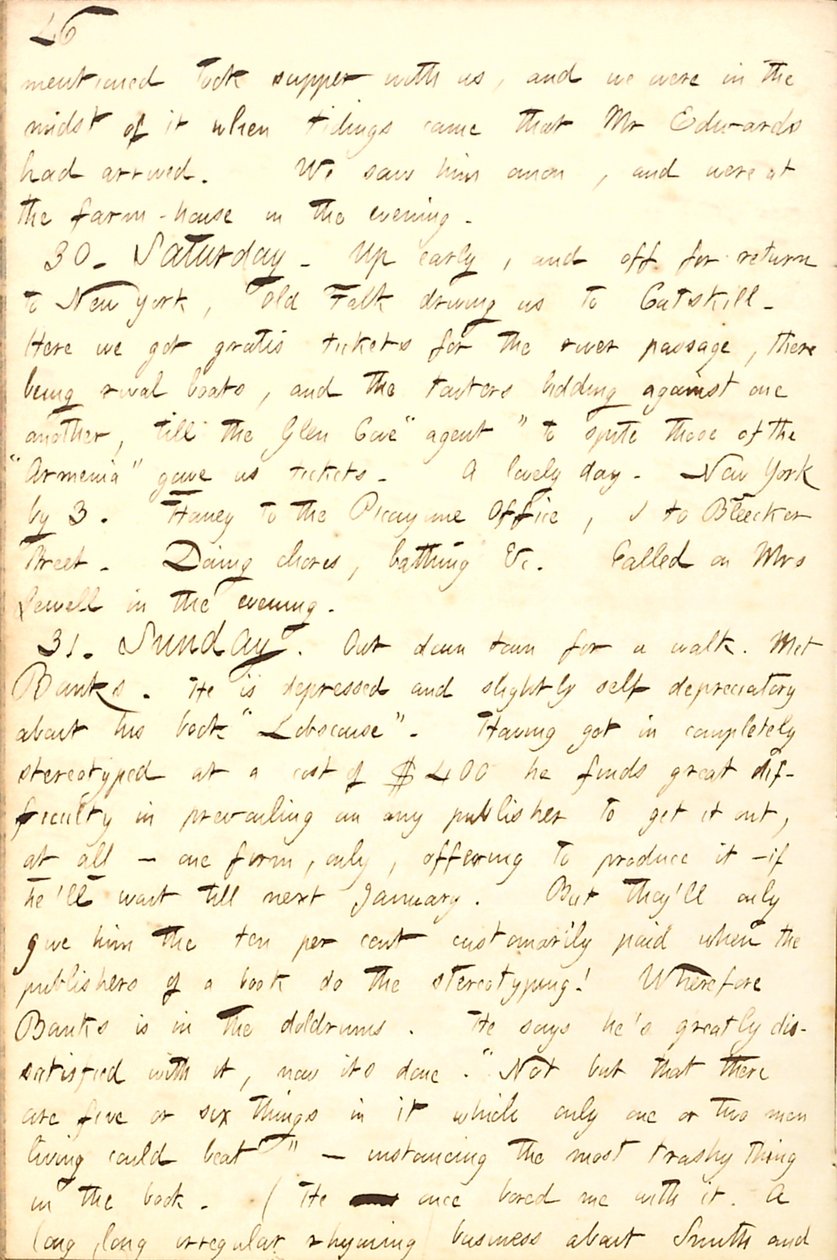 46
mentioned took supper with us, and we were in the
midst of it when tidings came that Mr Edwards
had arrived. We saw him anon, and were at
the farm-house in the evening.
30. Saturday. Up early, and off for return
to New York, Old Falk driving us to Catskill.
Here we got gratis tickets for the river passage, there
being rival boats, and the touters bidding against one
another, till the Glen Cove "agent" to spite those of the
"Armenia" gave us tickets. A lovely day. New York
by 3. Haney to the Picayune Office, I to Bleecker
Street. Doing chores, bathing &c. Called on Mrs
Sewell in the evening.
31. Sunday. Out down town for a walk. Met
Banks. He is depressed and slightly self depreciatory
about his book "Lobscouse". Having got in completely
stereotyped at a cost of $400 he finds great dif-
ficulty in prevailing on any publisher to get it out,
at all — one firm, only, offering to produce it — if
he'll wait till next January. But they'll only
give him the ten per cent customarily paid when the
publishers of a book do the stereotyping! Wherefore
Banks is in the doldrums. He says he's greatly dis-
satisfied with it, now its done. "Not but that there
are five or six things in it which only one or two men
living could beat" — instancing the most trashy thing
in the book. (He once bored me with it. A
long, long irregular rhyming business about Smith and